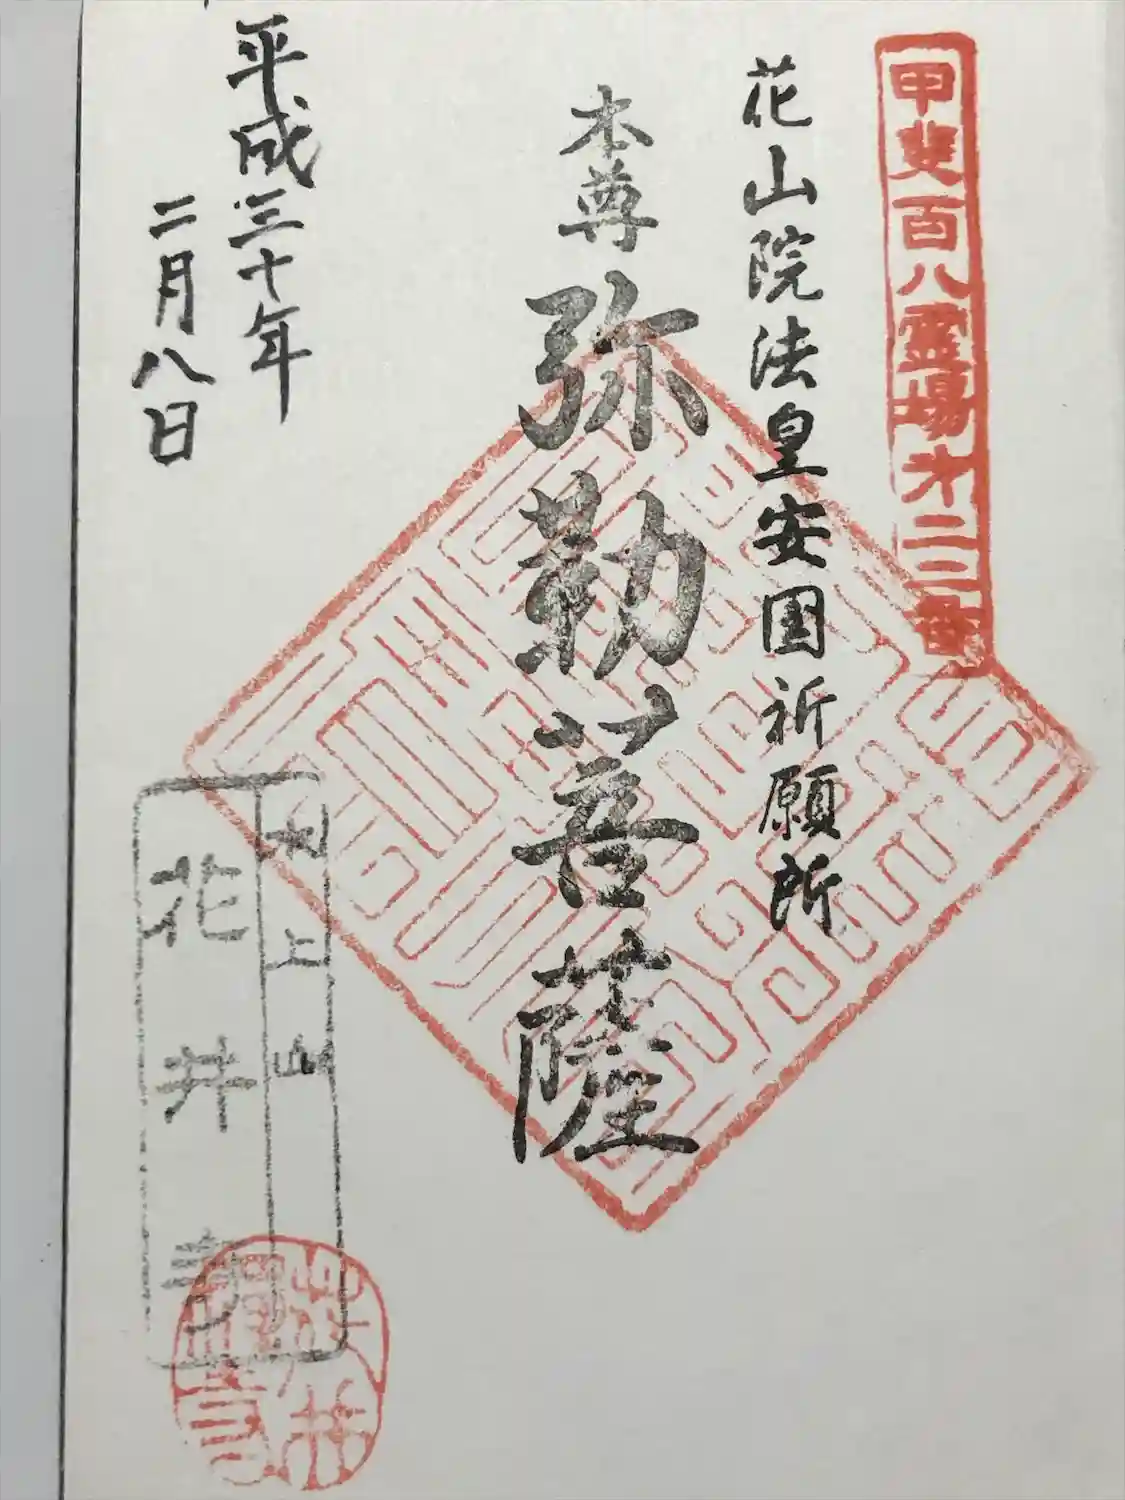 甲斐百八霊場才二二番
花山院法皇安国祈願所
本尊 弥勒菩薩
平成三十年
二月八日
上山
花井寺